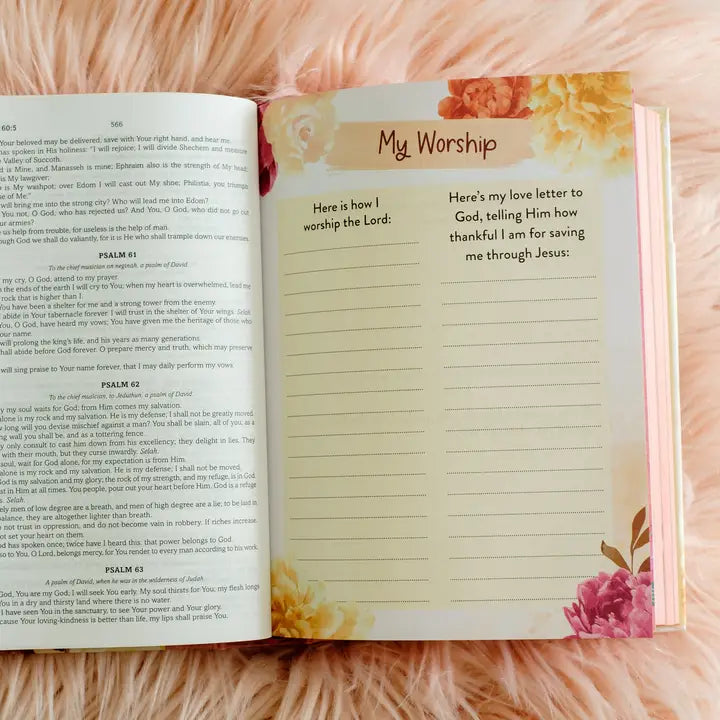 60:5 566
Your beloved may be delivered, save with Your right hand, and hear me.
has spoken in His holiness: "I will rejoice; I will divide Shechem and measure
Valley of Succoth.
is Mine, and Manasseh is mine; Ephraim also is the strength of My head;
is My lawgiver;
is My washpot; over Edom I will cast out My shoe; Philistia, you triumph
of Me."
will bring me into the strong city? Who will lead me into Edom?
You not, O God, who has rejected us? And You, O God, who did not go out
our armies?
us help from trouble, for useless is the help of man.
God we shall do valiantly, for it is He who shall trample down our enemies.
PSALM 61
To the chief musician on neginah, a psalm of David.
my cry, O God; attend to my prayer.
the ends of the earth I will cry to You; when my heart is overwhelmed, lead me
rock that is higher than I.
You have been a shelter for me and a strong tower from the enemy.
abide in Your tabernacle forever. I will trust in the shelter of Your wings. Selah.
You, O God, have heard my vows; You have given me the heritage of those who
name.
will prolong the king's life, and his years as many generations.
shall abide before God forever. O prepare mercy and truth, which may preserve
will sing praise to Your name forever, that I may daily perform my vows.
PSALM 62
To the chief musician, to Jeduthun, a psalm of David.
my soul waits for God; from Him comes my salvation.
alone is my rock and my salvation. He is my defense; I shall not be greatly moved.
long will you devise mischief against a man? You shall be slain, all of you; as a
wall you shall be, and as a tottering fence.
only consult to cast him down from his excellency; they delight in lies. They
with their mouth, but they curse inwardly. Selah.
soul, wait for God alone, for my expectation is from Him.
alone is my rock and my salvation. He is my defense; I shall not be moved.
God is my salvation and my glory; the rock of my strength, and my refuge, is in God.
in Him at all times. You people, pour out your heart before Him. God is a refuge
Selah.
men of low degree are a breath, and men of high degree are a lie; to be laid in
balance, they are altogether lighter than breath.
not trust in oppression, and do not become vain in robbery. If riches increase,
not set your heart on them.
has spoken once; twice have I heard this: that power belongs to God.
to You, O Lord, belongs mercy, for You render to every man according to his work.
PSALM 63
A psalm of David, when he was in the wilderness of Judah.
God, You are my God; I will seek You early. My soul thirsts for You; my flesh longs
You in a dry and thirsty land where there is no water.
I have seen You in the sanctuary, to see Your power and Your glory.
Your loving-kindness is better than life, my lips shall praise You.
My Worship
Here is how I
worship the Lord:
Here's my love letter to
God, telling Him how
thankful I am for saving
me through Jesus: